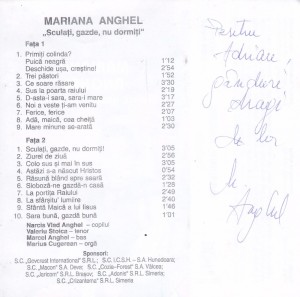 MARIANA ANGHEL
„Sculați, gazde, nu dormiți”
Fața 1
1. Primiți colinda?
Puică neagră 1'12
Deschide ușa, creștine! 2'52
2. Trei păstori 1'52
3. Ce soare răsare 2'30
4. Sus la poarta raiului 2'19
5. D-asta-i sara, sara-i mare 2'17
6. Noi a veste ți-am venitu 2'27
7. Ferice, ferice 2'27
8. Adă, maică, cea cheiță 1'03
9. Mare minune se-arată 2'30
Fața 2
1. Sculați, gazde, nu dormiți! 3'05
2. Zurel de ziuă 2'56
3. Colo sus și mai în sus 2'03
4. Astăzi s-a născut Hristos 2'54
5. Răsună blând spre seară 2'32
6. Sloboză-ne gazdă-n casă 1'28
7. La portița Raiului 2'20
8. La sfânșitu' lumiire 2'10
9. Sfântă Maică a lui Iisus 1'46
10. Sara bună, gazdă bună 1'01
Narcis Vlad Anghel – copilul
Valeriu Stoica – tenor
Marcel Anghel – bas
Marius Cugerean – orgă
Sponsori:
S.C. „Govicost International” S.R.L.; S.C. I.C.S.H. – S.A. Hunedoara;
S.C. „Macon” S.A. Deva; S.C. „Cozia-Forest” S.A. Vâlcea;
S.C. „Joricom” S.R.L. Brașov; S.C. „Adonis” S.R.L. Simeria;
S.C. „Crisantema” S.R.L. Simeria
Pentru
Adrian,
gânduri
dragi
de la
M.
Anghel